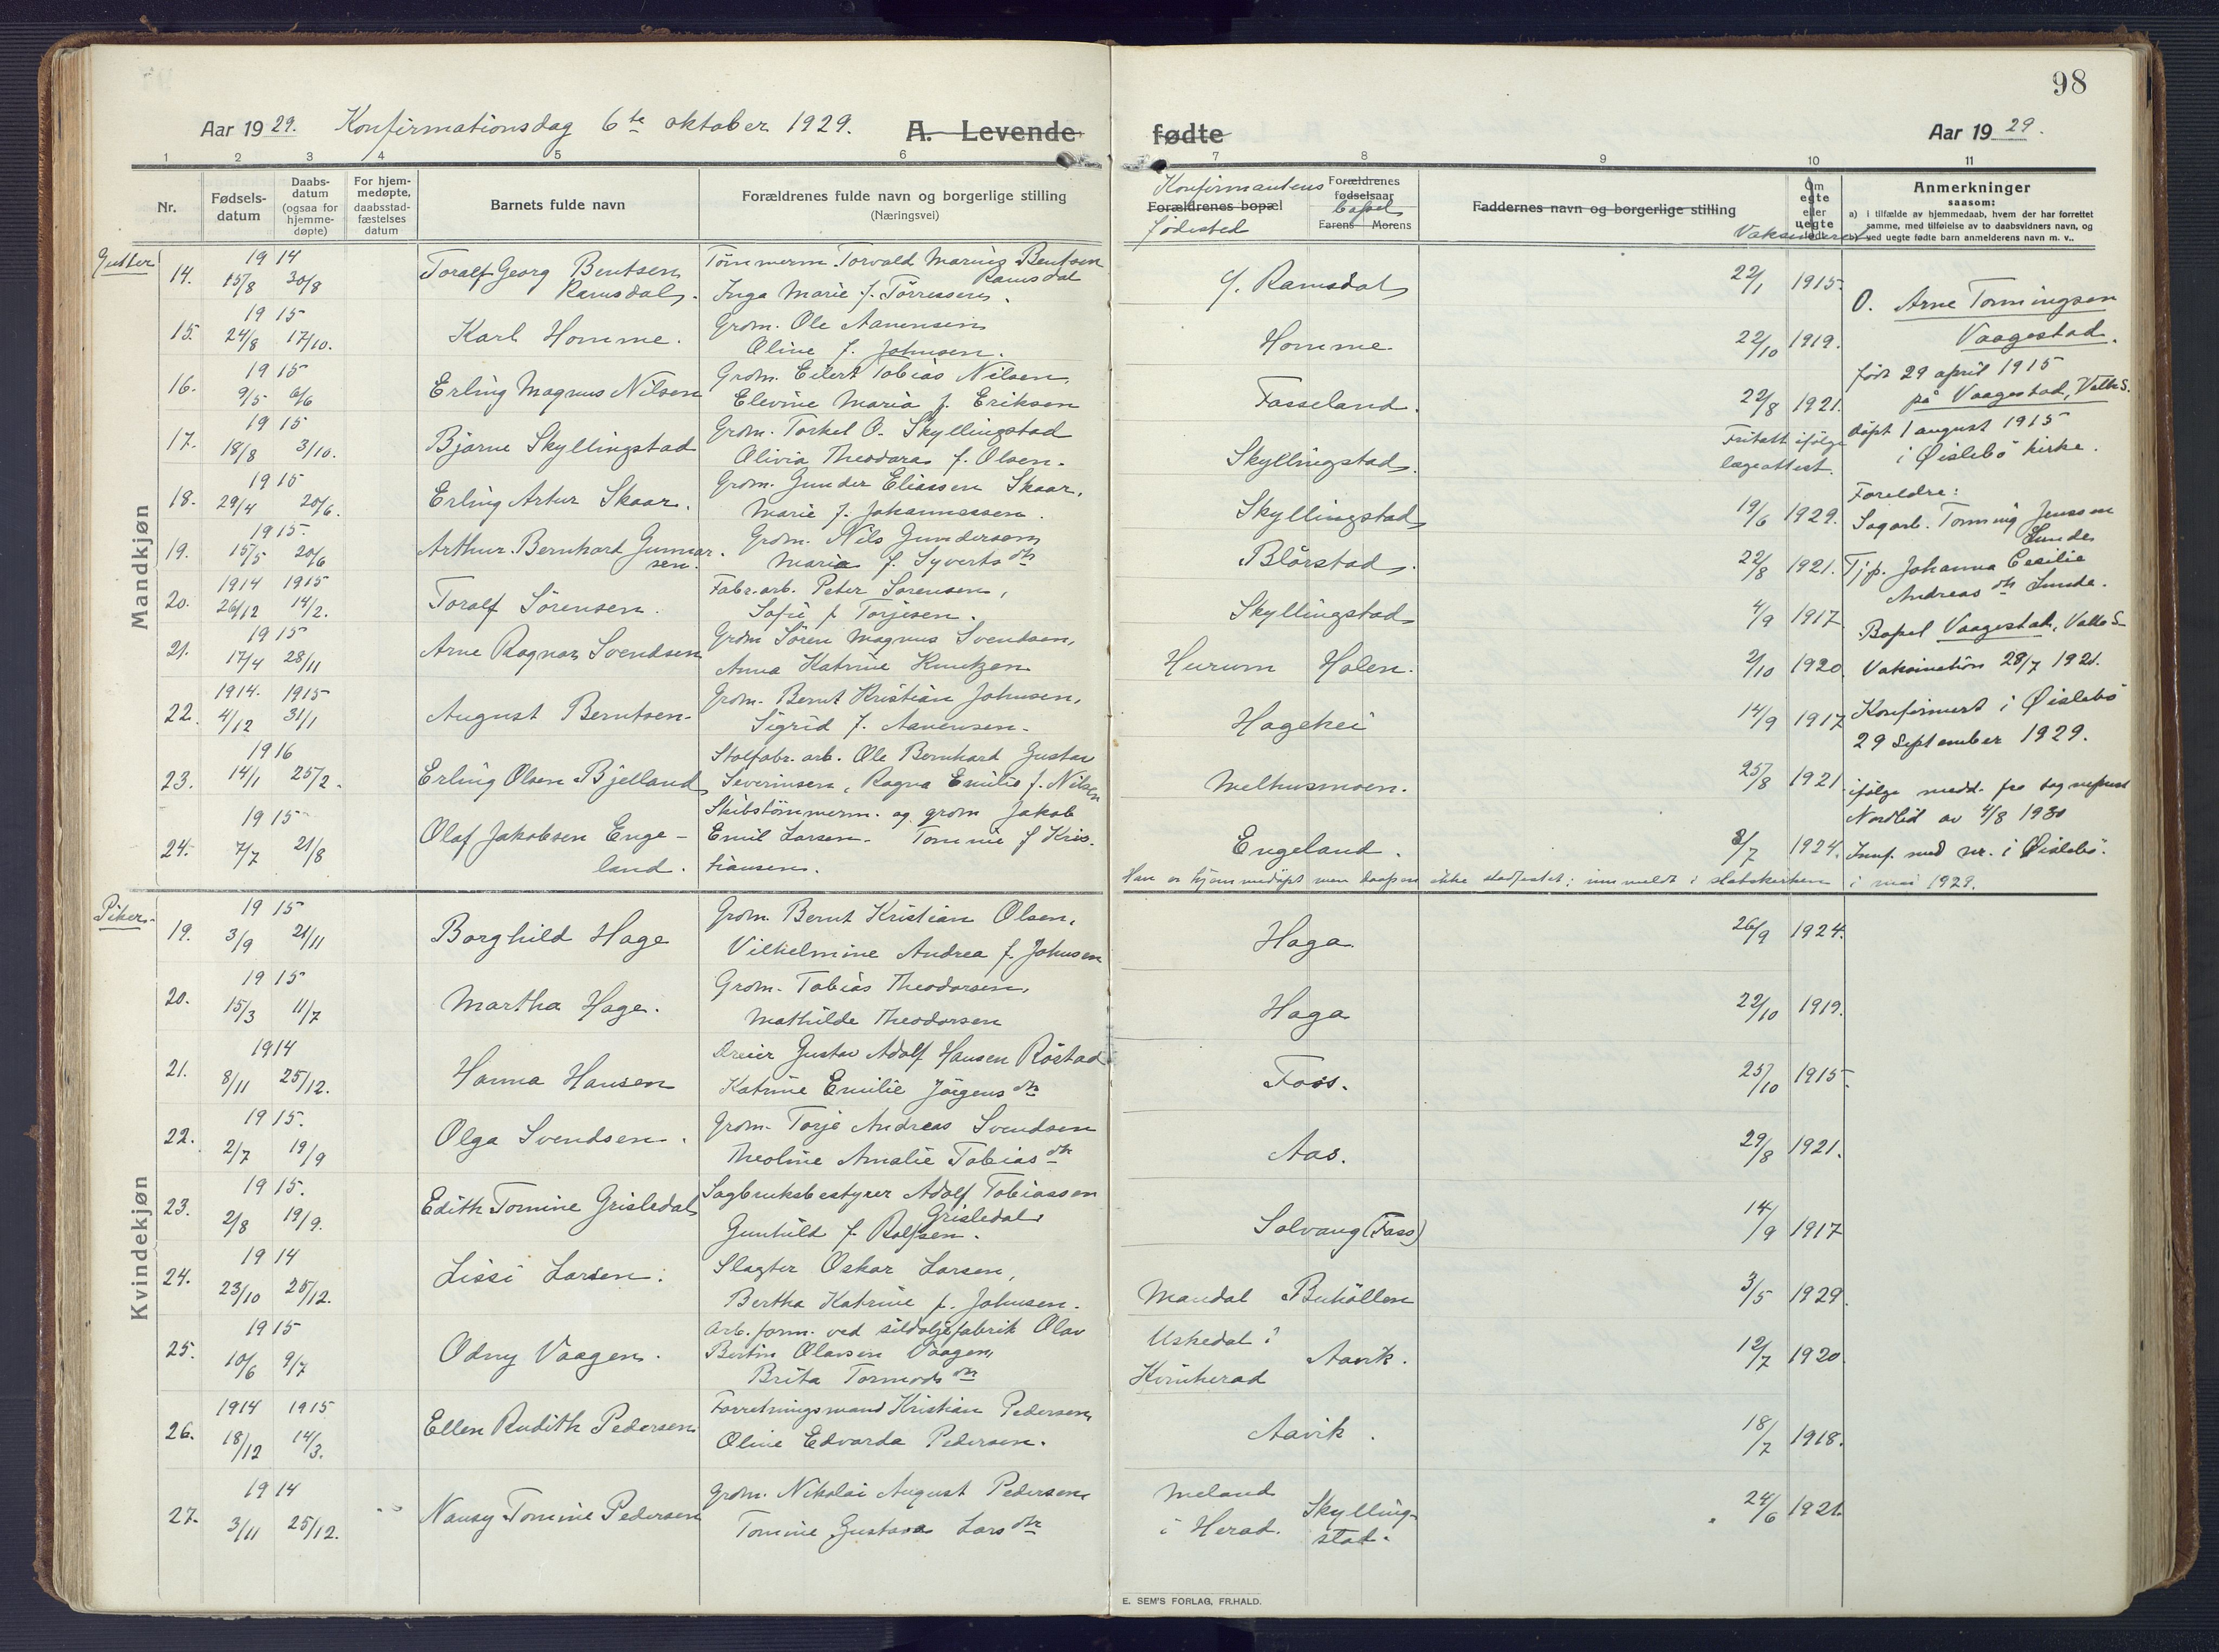 98
Aar 1929. Konfirmationsdag 6te oktober 1929. A. Levende fødte Aar 1929.
1 2 3 4 5 6 7 8 9 10 11
Nr.
Fødsels-
datum
Daabs-
datum
(ogsaa for
hjemme-
døpte)
For hjem-
medøpte,
daabsstad-
fæstelses
datum
Barnets fulde navn
Forældrenes fulde navn og borgerlige stilling
(Næringsvei)
Konfirmantens
Forældrenes bopæl
fødested
Forældrenes
fødselsaar
bopæl
Farens Morens
Faddernes navn og borgerlige stilling
Om
egte
eller
uegte
født
Vaksineret
Anmerkninger
saasom:
a) i tilfælde av hjemmedaab, hvem der har forrettet
samme, med tilføielse av to daabsvidners navn, og
ved uegte fødte barn anmelderens navn m. v..
Gutter
Mandkjøn
1914
14. 15/8 30/8 Toralf Georg Bentsen Tømmerm. Torvald Marius Bentsen
Ramsdal. Ramsdal
Inga Marie f. Tørressen. Ramsdal 22/1 1915.
1915
15. 24/8 17/10. Karl Homme. Grdm. Ole Aanensen
Oline f. Johnsen. Homme. 22/10 1919.
1915
16. 9/5 6/6 Erling Magnus Nilsen Grdm. Eilert Tobias Nilsen,
Elevine Maria f. Eriksen Fasseland. 22/8 1921.
1915
17. 18/8 3/10. Bjarne Skyllingstad Grdm. Torkel O. Skyllingstad
Olivia Theodora f. Olsen. Skyllingstad. Fritatt ifølge
lægeattest.
1915
18. 29/4 20/6. Erling Artur Skaar. Grdm. Gunder Eliassen Skaar,
Marie f. Johannessen. Skyllingstad 19/6 1929.
1915.
19. 15/5 20/6 Arthur Bernhard Gunnar- Grdm. Nils Gundersen
sen. Maria f. Syvertsdtr Blørstad. 22/8 1921.
1914 1915
20. 26/12 14/2. Toralf Sørensen. Fabr.arb. Peter Sørensen,
Sofie f. Torjesen. Skyllingstad 4/9 1917
1915
21. 17/4 28/11 Arne Ragnar Svendsen Grdm Søren Magnus Svendsen,
Anna Katrine Knutzen Hurum Holen. 2/10 1920.
1914. 1915
22. 4/12 31/1 August Berntsen. Grdm. Bernt Kristian Johnsen,
Sigrid f. Aanensen. Hagehei 14/9 1917
1916
23. 14/1 25/2. Erling Olsen Bjelland Stolfabr. arb. Ole Bernhard Gustav
Severinsen, Ragna Emilie f. Nilsen Melhusmoen. 25/8 1921
1915
24. 7/7 21/8 Olaf Jakobsen Enge-
land. Skibstømmerm. og grdm Jakob
Emil Larsen. Tomine f Kris-
tiansen. Engeland. 8/7 1924.
Han er hjemmedøpt men daapen ikke stadfestet; innmeldt i statskirken i mai 1929.
O. Arne Tormingsen
Vaagestad.
født 29 april 1915
på Vaagestad, Valle S.
døpt 1 august 1915
i Øislebø kirke.
Foreldre:
Sagarb. Torming Jenssen
Lunde
Tjp. Johanna Cecilie
Andreasdtr Lunde.
Bopel Vaagestad, Valle S.
Vaksination 28/7 1921.
Konfirmert i Øislebø
29 september 1929.
ifølge medd. fra sogneprest
Nordlid av 4/8 1930
Innf. med nr. i Øislebø.
Piker.
Kvindekjøn
1915
19. 3/9 21/11 Borghild Hage Grdm. Bernt Kristian Olsen,
Vilhelmine Andrea f. Johnsen Haga 26/9 1924.
1915
20. 15/3 11/7 Martha Hage. Grdm. Tobias Theodorsen,
Mathilde Theodorsen Haga 22/10 1919.
1914
21. 8/11 25/12. Hanna Hansen Dreier Gustav Adolf Hansen Røstad
Katrine Emilie Jørgensdtr Foss. 25/10 1915.
1915.
22. 2/7 19/9 Olga Svendsen. Grdm. Torje Andreas Svendsen
Theoline Amalie Tobiasdtr Aas. 29/8 1921.
1915.
23. 2/8 19/9. Edith Tomine Grisledal Sagbruksbestyrer Adolf Tobiassen
Grisledal
Gunhild f. Rolfsen. Solvang (Fass) 14/9 1917
1914
24. 23/10 25/12. Lissi Larsen. Slagter Oskar Larsen,
Bertha Katrine f. Johnsen. Mandal Buhøllen 3/5 1929.
1915
25. 10/6 9/7 Odny Vaagen. Arb.form. ved sildoljefabrik Olav
Bertin Olavsen Vaagen,
Brita Tormodsdtr Uskedal i
Kvinherad Aavik. 12/7 1920.
1914 1915
26. 18/12 14/3. Ellen Rudith Pedersen Forretningsmand Kristian Pedersen,
Oline Edvarda Pedersen. Aavik. 18/7 1918.
1914
27. 3/11 25/12. Nansy Tomine Pedersen Grdm. Nikolai August Pedersen
Tomine Gustava Larsdtr Meland
i Herad. Skylling-
stad. 24/6 1921.
E. SEM'S FORLAG, FR.HALD.